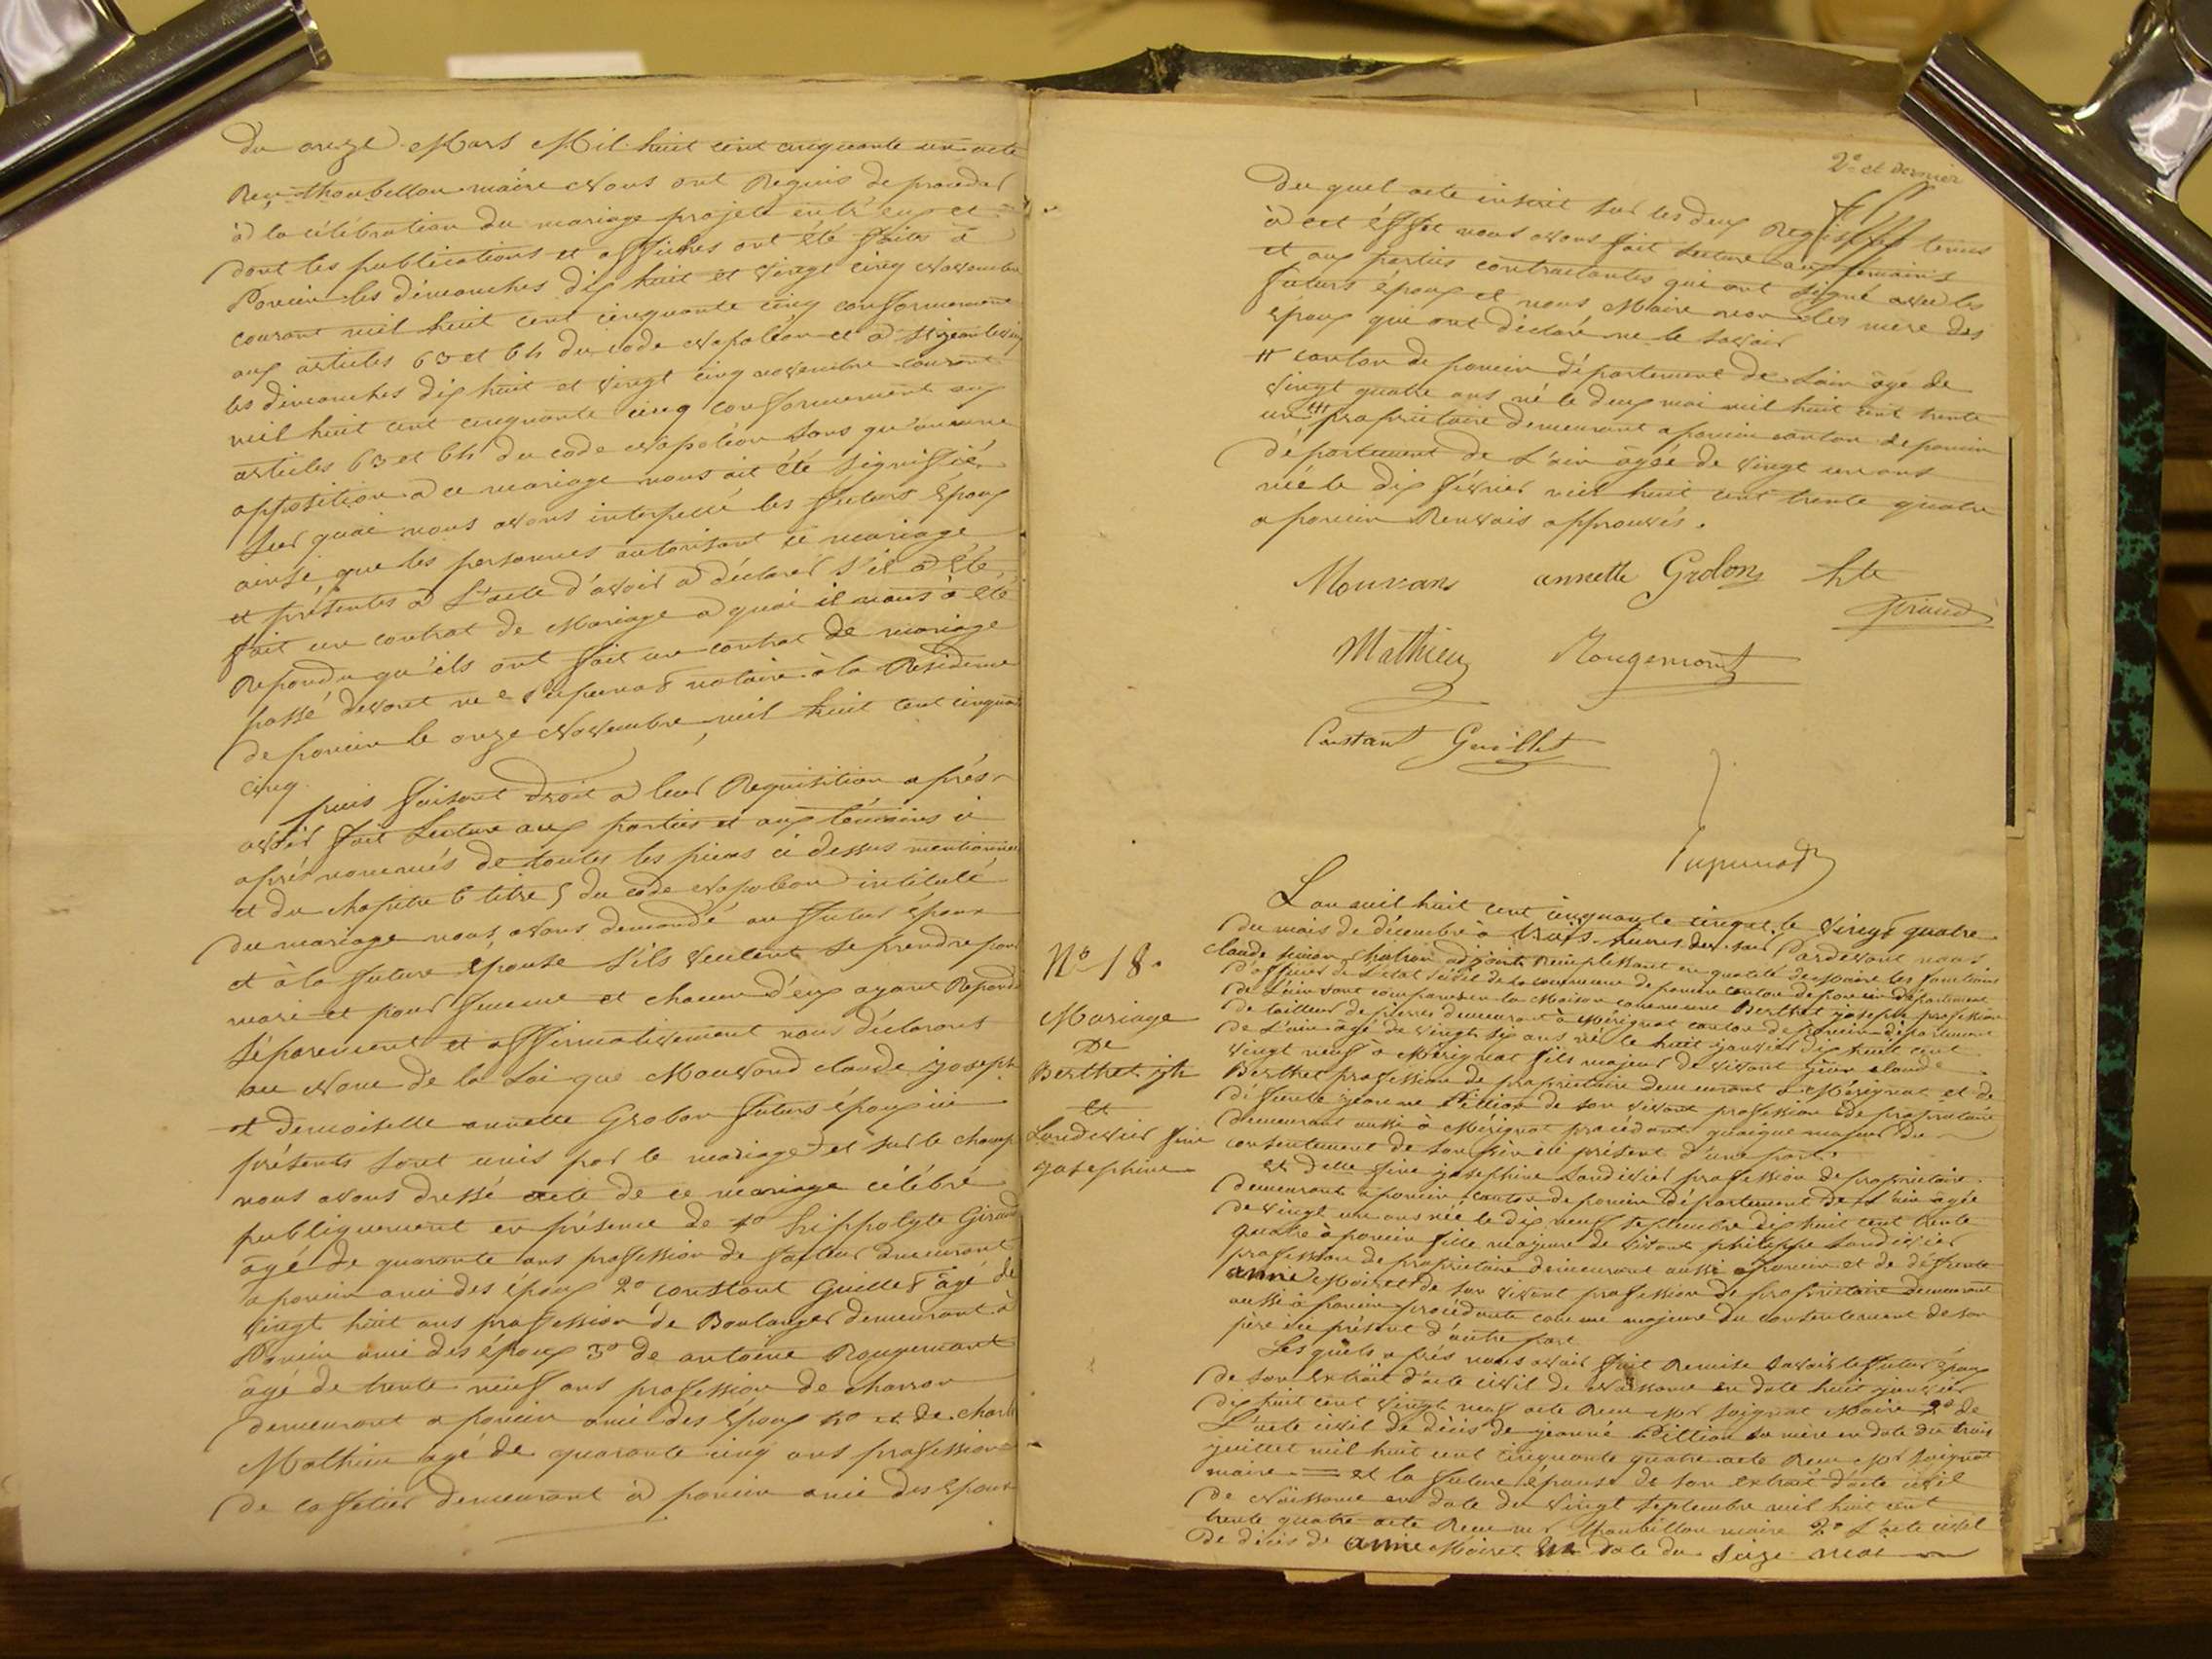 Du onze Mars Mil huit cent cinquante un acte
Reçu thoubillon maire Nous ont Requis de procéder
à la célébration du mariage projeté entr'eux et
dont les publications et affiches ont été faites à
Poncin les dimanches dix huit et vingt cinq Novembre
courant mil huit cent cinquante cinq conformement
aux articles 63 et 64 du code Napoléon et à
les dimanches dix huit et vingt cinq novembre courant
mil huit cent cinquante cinq conformement aux
articles 63 et 64 du code Napoléon sans qu'aucune
opposition à ce mariage nous ait été signiffié,
Sur quoi nous avons interpellé les futurs époux
ainsi que les personnes autorisant le mariage
et présentes à l'acte d'avoir à déclarer s'il a été
fait un contrat de Mariage a quoi il nous a été
Repondu qu'ils ont fait un contrat de mariage
passé devant me notaire à la Résidence
de poncin le onze Novembre mil huit cent cinquante
cinq.
puis faisant droit à leur Requisition après
avoir fait Lecture aux parties et aux témoins ci
après nommés de toutes les pièces ci dessus mentionnées
et du chapitre 6 titre 5 du code Napoléon intitulé
du mariage nous avons demandé au futur époux
et à la future épouse s'ils veulent se prendre pour
mari et pour femme et chacun d'eux ayant Repondu
séparement et affirmativement nous déclarons
au Nom de la Loi que Mouvand claude joseph
et demoiselle annette Grobon futurs époux ici
présents sont unis par le mariage et sur le champ
nous avons dressé acte de ce mariage célébré
publiquement en présence de 1o hippolyte Giraud
âgé de quarante ans profession de facteur demeurant
a poncin ami des époux 2o constant Guillet âgé de
vingt huit ans profession de Boulanger demeurant à
Poncin ami des époux 3o de antoine Rougemont
âgé de trente neuf ans profession de charron
demeurant a poncin ami des époux 4o et de charles
Mathieu agé de quarante cinq ans profession
de caffetier demeurant à poncin ami des époux
2e et dernier
Du quel acte inscrit sur les deux Registres tenus
à cet éffet nous avons fait Lecture aux témoins
et aux parties contractantes qui ont signé avec les
futurs époux et nous Maire non les mère des
époux qui ont déclaré ne le savoir
# canton de poncin département de Lain âgé de
vingt quatre ans né le deux mai mil huit cent trente
un propriétaire demeurant a poncin canton de poncin
département de L'ain âgée de vingt un ans
née le dix février mil huit cent trente quatre
a poncin Renvois approuvés.
Mouvan annette Grobon hte
Giraud
Mathieu Rougemont
Constant Guillet
N° 18.
Mariage
De
Berthet jh
et
Landivier fine
josephine
L'an mil huit cent cinquante cinq et le vingt quatre
du mois de décembre à trois heures du soir Pardevant nous
claude simon adjoint Remplissant en qualité de Maire les fonctions
d'officier de L'état civil de la commune de poncin canton de poncin département
de L'ain sont comparus en la Maison commune Berthet joseph profession
de tailleur de pierres demeurant à Mérignat canton de poncin département
de L'ain âgé de vingt six ans né le huit janvier dix huit cent
vingt neuf à Mérignat fils majeur de vivant claude
Berthet profession de propriétaire demeurant a Mérignat et de
défunte jeanne Pillion de son vivant profession de propriétaire
demeurant aussi à Mérignat procédant quoique majeur du
consentement de son père ici présent d'une part
et delle fine josephine Landivier profession de propriétaire
demeurant a poncin canton de poncin département de L'ain agée
de vingt un ans née le dix neuf septembre dix huit cent trente
quatre à poncin fille majeure de vivant philippe Landivier
profession de propriétaire demeurant aussi a poncin et de défunte
annie Moiret de son vivant profession de propriétaire demeurant
aussi à poncin procédante comme majeure du consentement de son
père ici présent d'autre part
Les quels après nous avoir fait Remise savoir le futur époux
de son extrait d'acte civil de Naissance en date huit janvier
dix huit cent vingt neuf acte Reçu Mr Soignat Maire 2o de
L'acte civil de décès de jeanne Pillion sa mère en date du trois
juillet mil huit cent cinquante quatre acte Reçu Mr Soignat
maire = et la future épouse de son extrait d'acte civil
de Naissance en date du vingt septembre mil huit cent
trente quatre acte Reçu mr thoubillon maire 2o L'acte civil
de décès de annie Moiret en date du seize mai